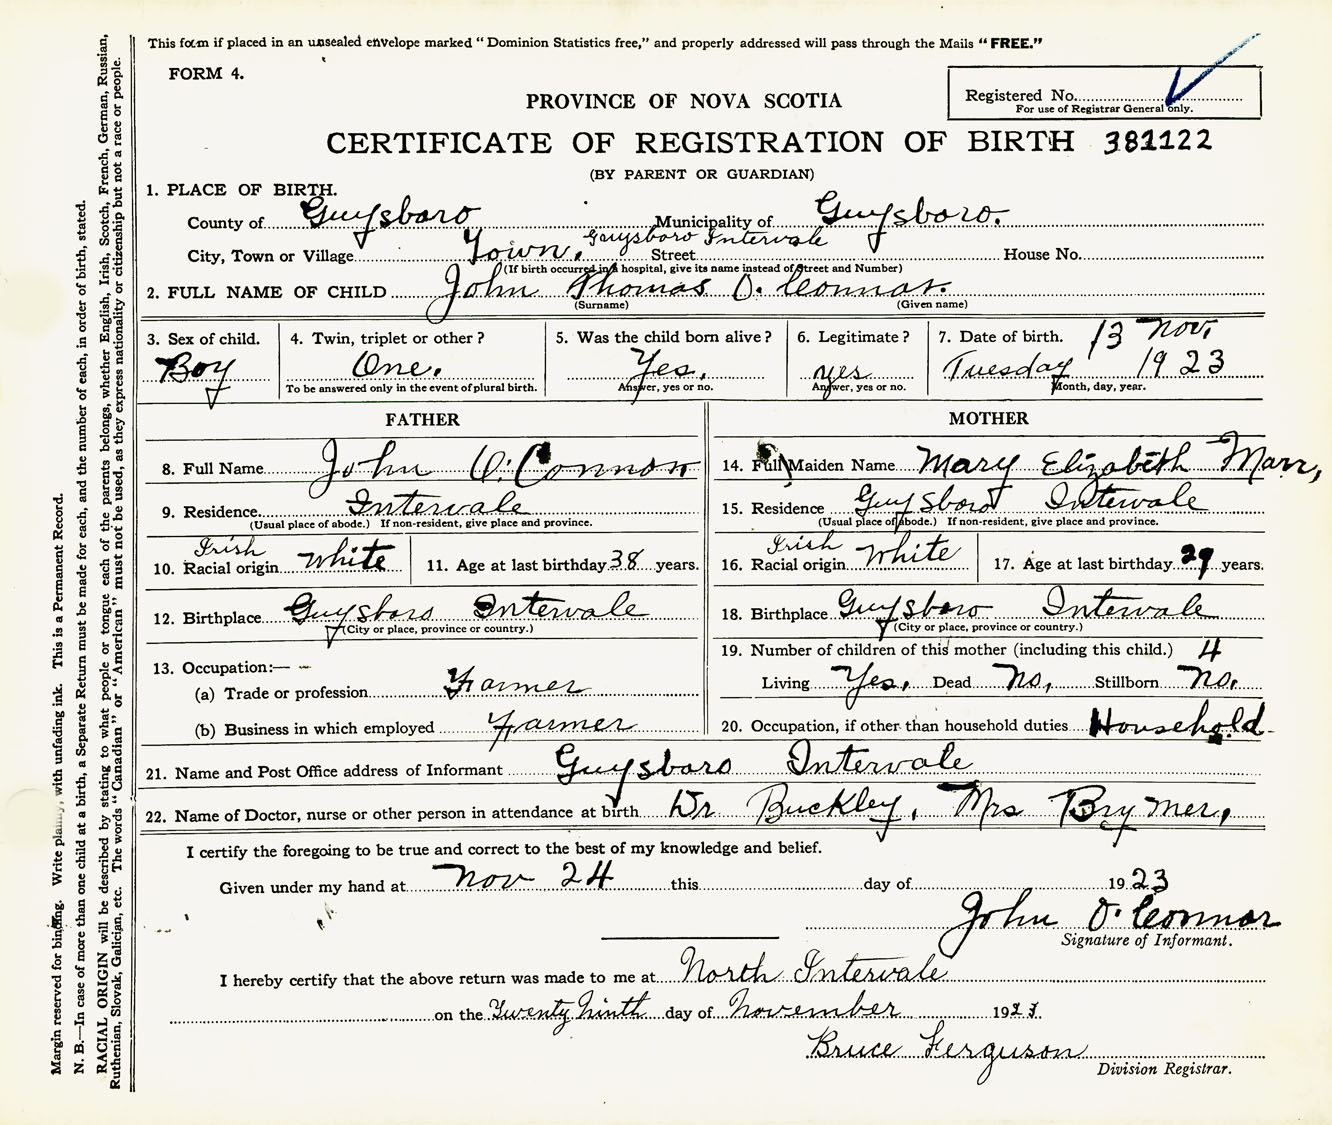 This form if placed in an unsealed envelope marked "Dominion Statistics free," and properly addressed will pass through the Mails "FREE."
FORM 4.
Registered No.
For use of Registrar General only.
PROVINCE OF NOVA SCOTIA
CERTIFICATE OF REGISTRATION OF BIRTH 381122
(BY PARENT OR GUARDIAN)
1. PLACE OF BIRTH.
County of Guysboro Municipality of Guysboro.
Guysboro Intervale
City, Town or Village Town. Street House No.
(If birth occurred in a hospital, give its name instead of Street and Number)
2. FULL NAME OF CHILD John Thomas O. Connor.
(Surname) (Given name)
3. Sex of child. 4. Twin, triplet or other? 5. Was the child born alive? 6. Legitimate? 7. Date of birth. 13 Nov,
Boy One. Yes. yes Tuesday 1923
To be answered only in the event of plural birth. Answer, yes or no. Answer, yes or no. Month, day, year.
FATHER
8. Full Name John O. Connor
9. Residence. Intervale
(Usual place of abode.) If non-resident, give place and province.
Irish
10. Racial origin White 11. Age at last birthday 38 years.
12. Birthplace Guysboro Intervale
(City or place, province or country.)
13. Occupation:—
(a) Trade or profession Farmer
(b) Business in which employed Farmer
MOTHER
14. Full Maiden Name Mary Elizabeth Marr,
15. Residence Guysboro Intervale
(Usual place of abode.) If non-resident, give place and province.
Irish
16. Racial origin White 17. Age at last birthday 29 years.
18. Birthplace Guysboro Intervale
(City or place, province or country.)
19. Number of children of this mother (including this child.) 4
Living Yes. Dead No, Stillborn No.
20. Occupation, if other than household duties Household
21. Name and Post Office address of Informant Guysboro Intervale
22. Name of Doctor, nurse or other person in attendance at birth Dr Buckley, Mrs Brymer,
I certify the foregoing to be true and correct to the best of my knowledge and belief.
Given under my hand at Nov 24 this day of 1923
John O. Connor
Signature of Informant.
I hereby certify that the above return was made to me at North Intervale
on the Twenty Ninth day of November 1923.
Bruce Ferguson
Division Registrar.
Margin reserved for binding. Write plainly, with unfading ink. This is a Permanent Record.
N. B.—In case of more than one child at a birth, a Separate Return must be made for each, and the number of each, in order of birth, stated.
RACIAL ORIGIN will be described by stating to what people or tongue each of the parents belongs, whether English, Irish, Scotch, French, German, Russian,
Ruthenian, Slovak, Galician, etc. The words "Canadian" or "American" must not be used, as they express nationality or citizenship but not a race or people.